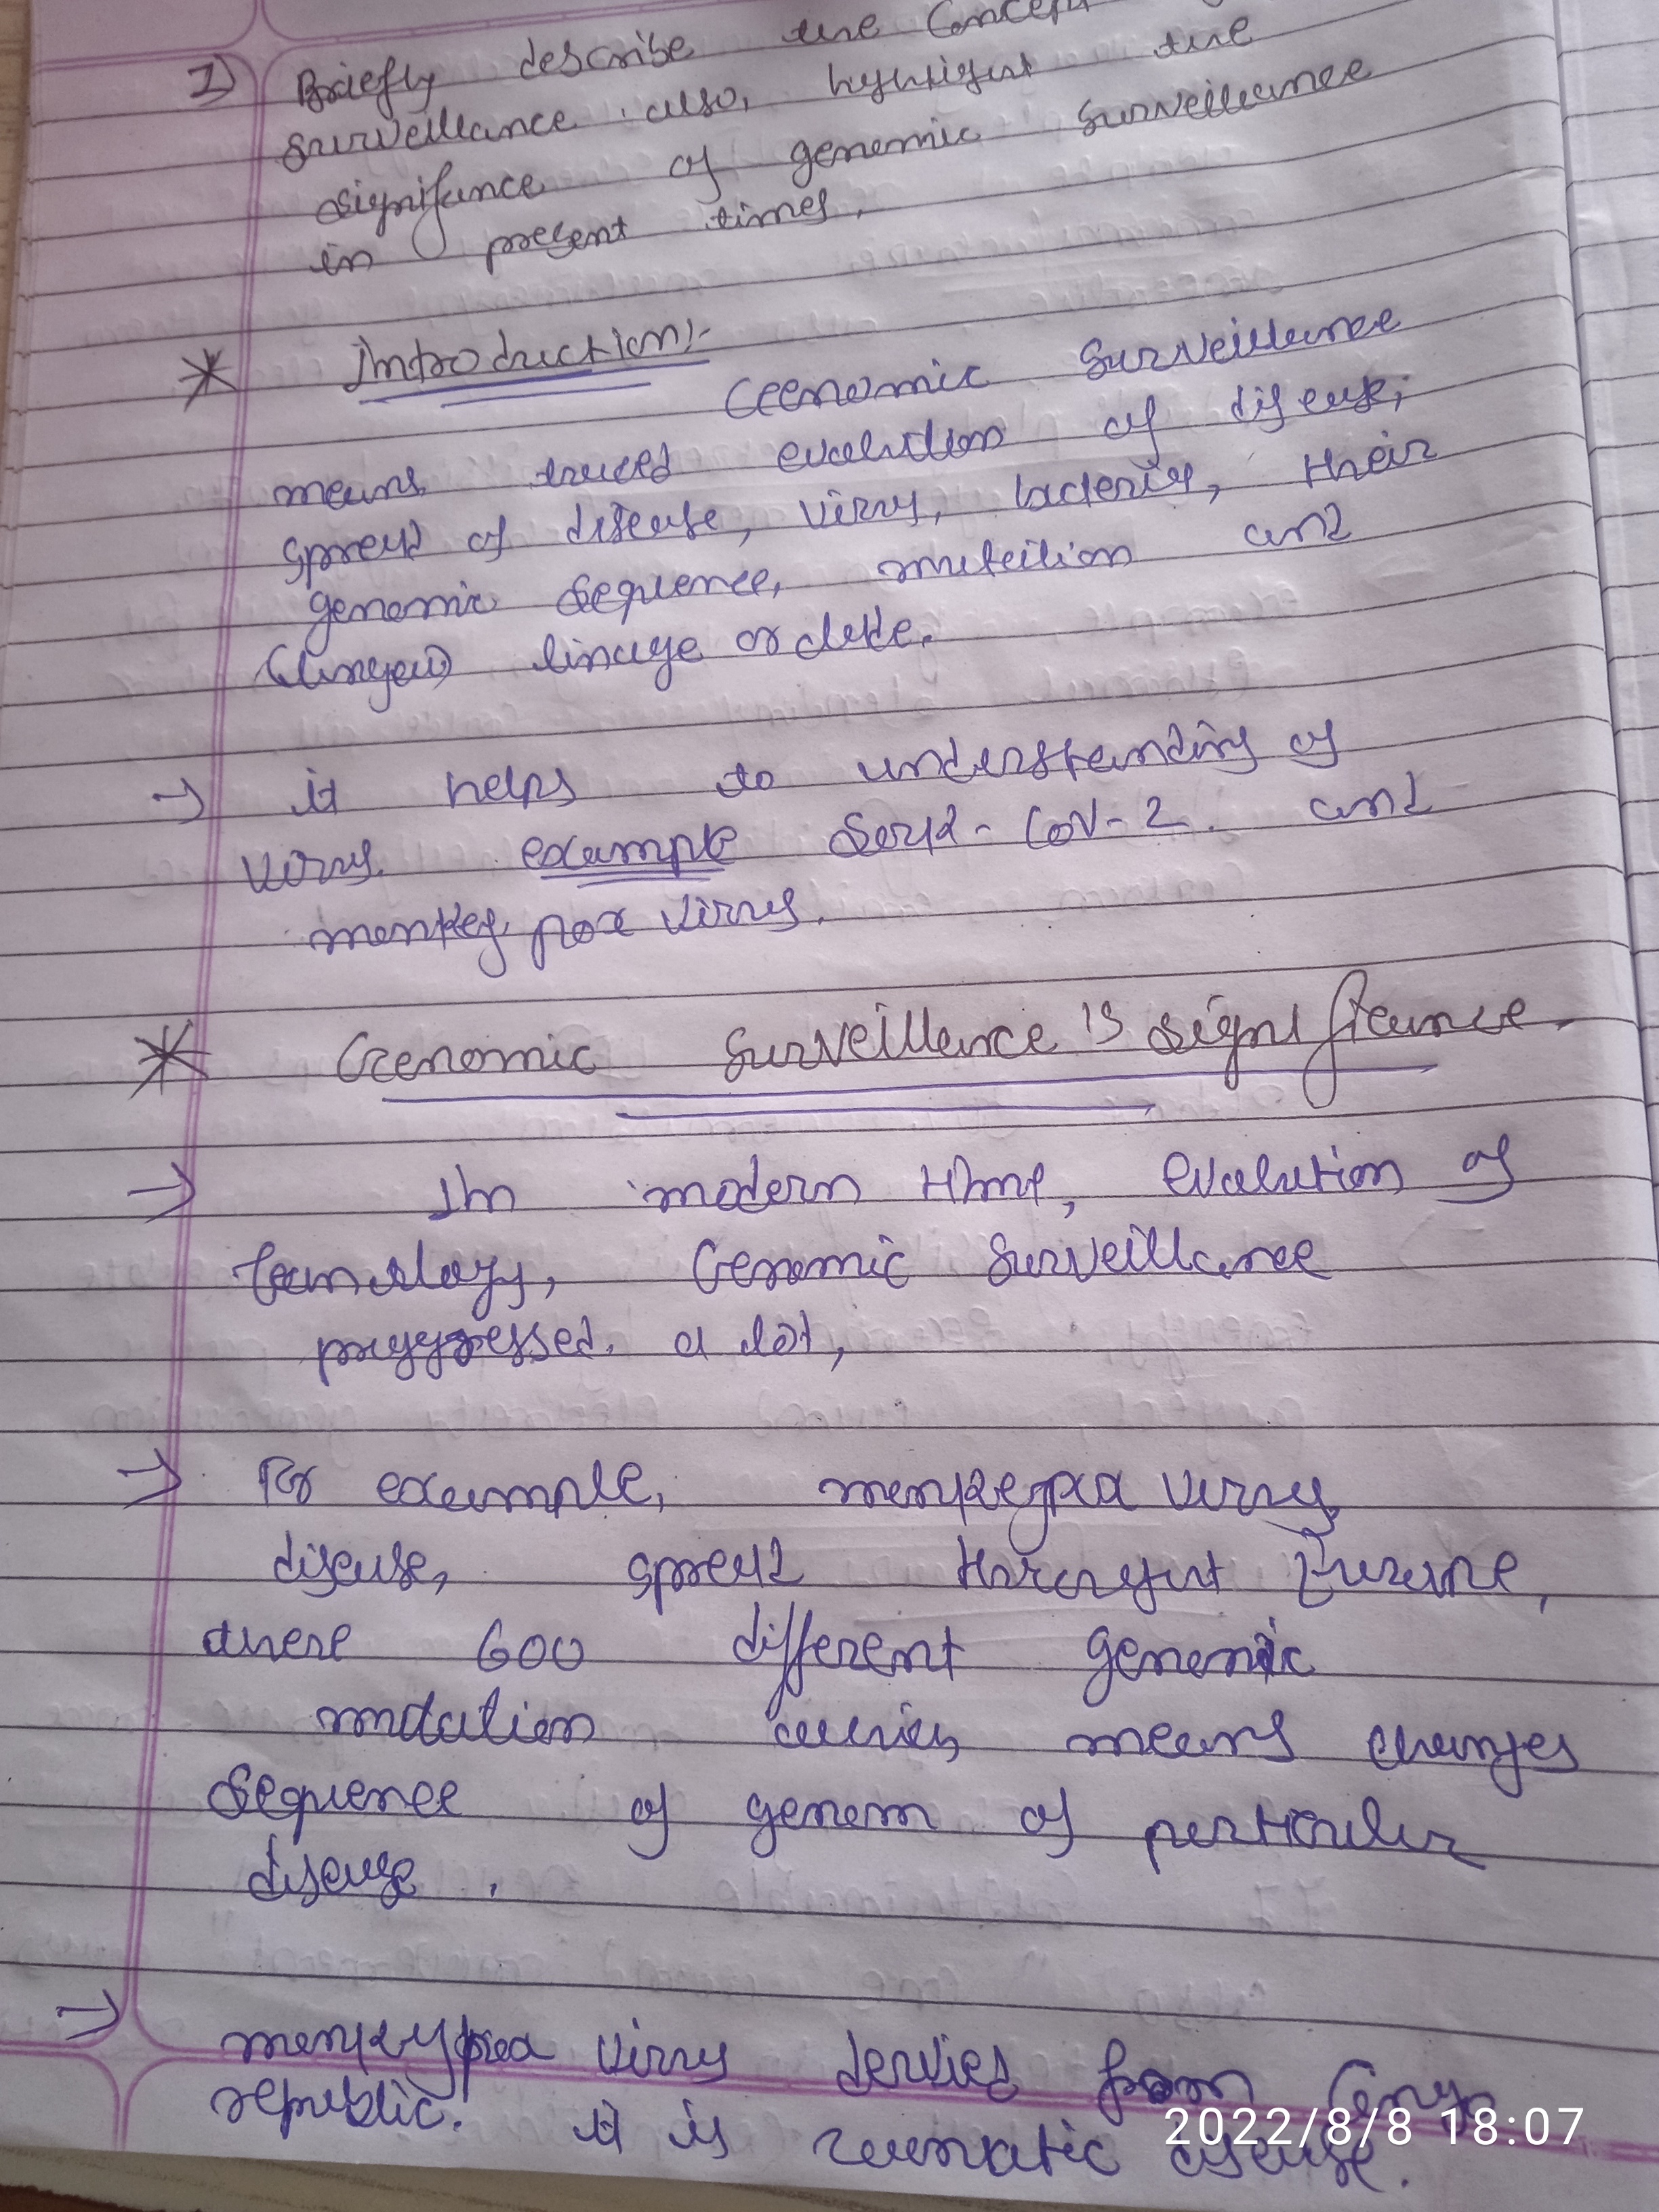 1) Briefly describe the Concept
surveillance also, highlight the
signifance of genemic surveillance
in present times.
* Introduction:-
Geenomic surveillance
means traced evalution of disease,
spread of disease, virus, bacteries, their
genemic sequence, mutation and
linage or
→ it helps to understanding of
virus. example - CoV-2. and
menkey pox virus.
* Genomic surveillance is significance.
→ In modern time, evalution of
Genomic surveillance
proggressed. a lot,
→ For example, virus
disease, spread Europe,
there 600 different genemic
mutation carries, means changes
sequence of genem of perticular
disease.
→ virus from
republic. it is disease.
2022/8/8 18:07